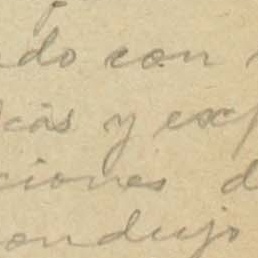 ado con
cas y exp
ciones d
condujo